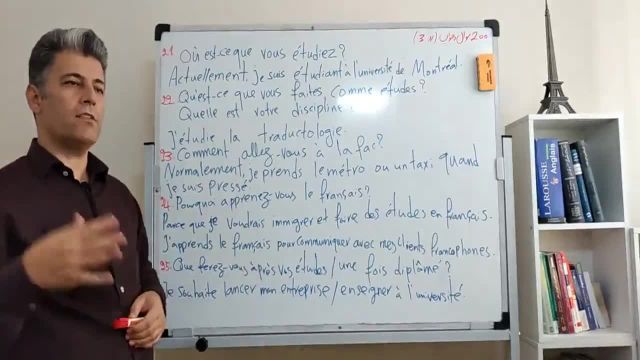 21. Où est-ce que vous étudiez?
Actuellement, je suis étudiant à l'université de Montréal.
22. Qu'est-ce que vous faites, comme études?
Quelle est votre discipline?
J'étudie la traductologie.
23. Comment allez-vous à la fac?
Normalement, je prends le métro ou un taxi quand
je suis pressé.
24. Pourquoi apprenez-vous le français?
Parce que je voudrais immigrer et faire des études en français.
J'apprends le français pour communiquer avec mes clients francophones.
25. Que ferez-vous après vos études / une fois diplômé?
Je souhaite lancer mon entreprise / enseigner à l'université.
LAROUSSE
Anglais